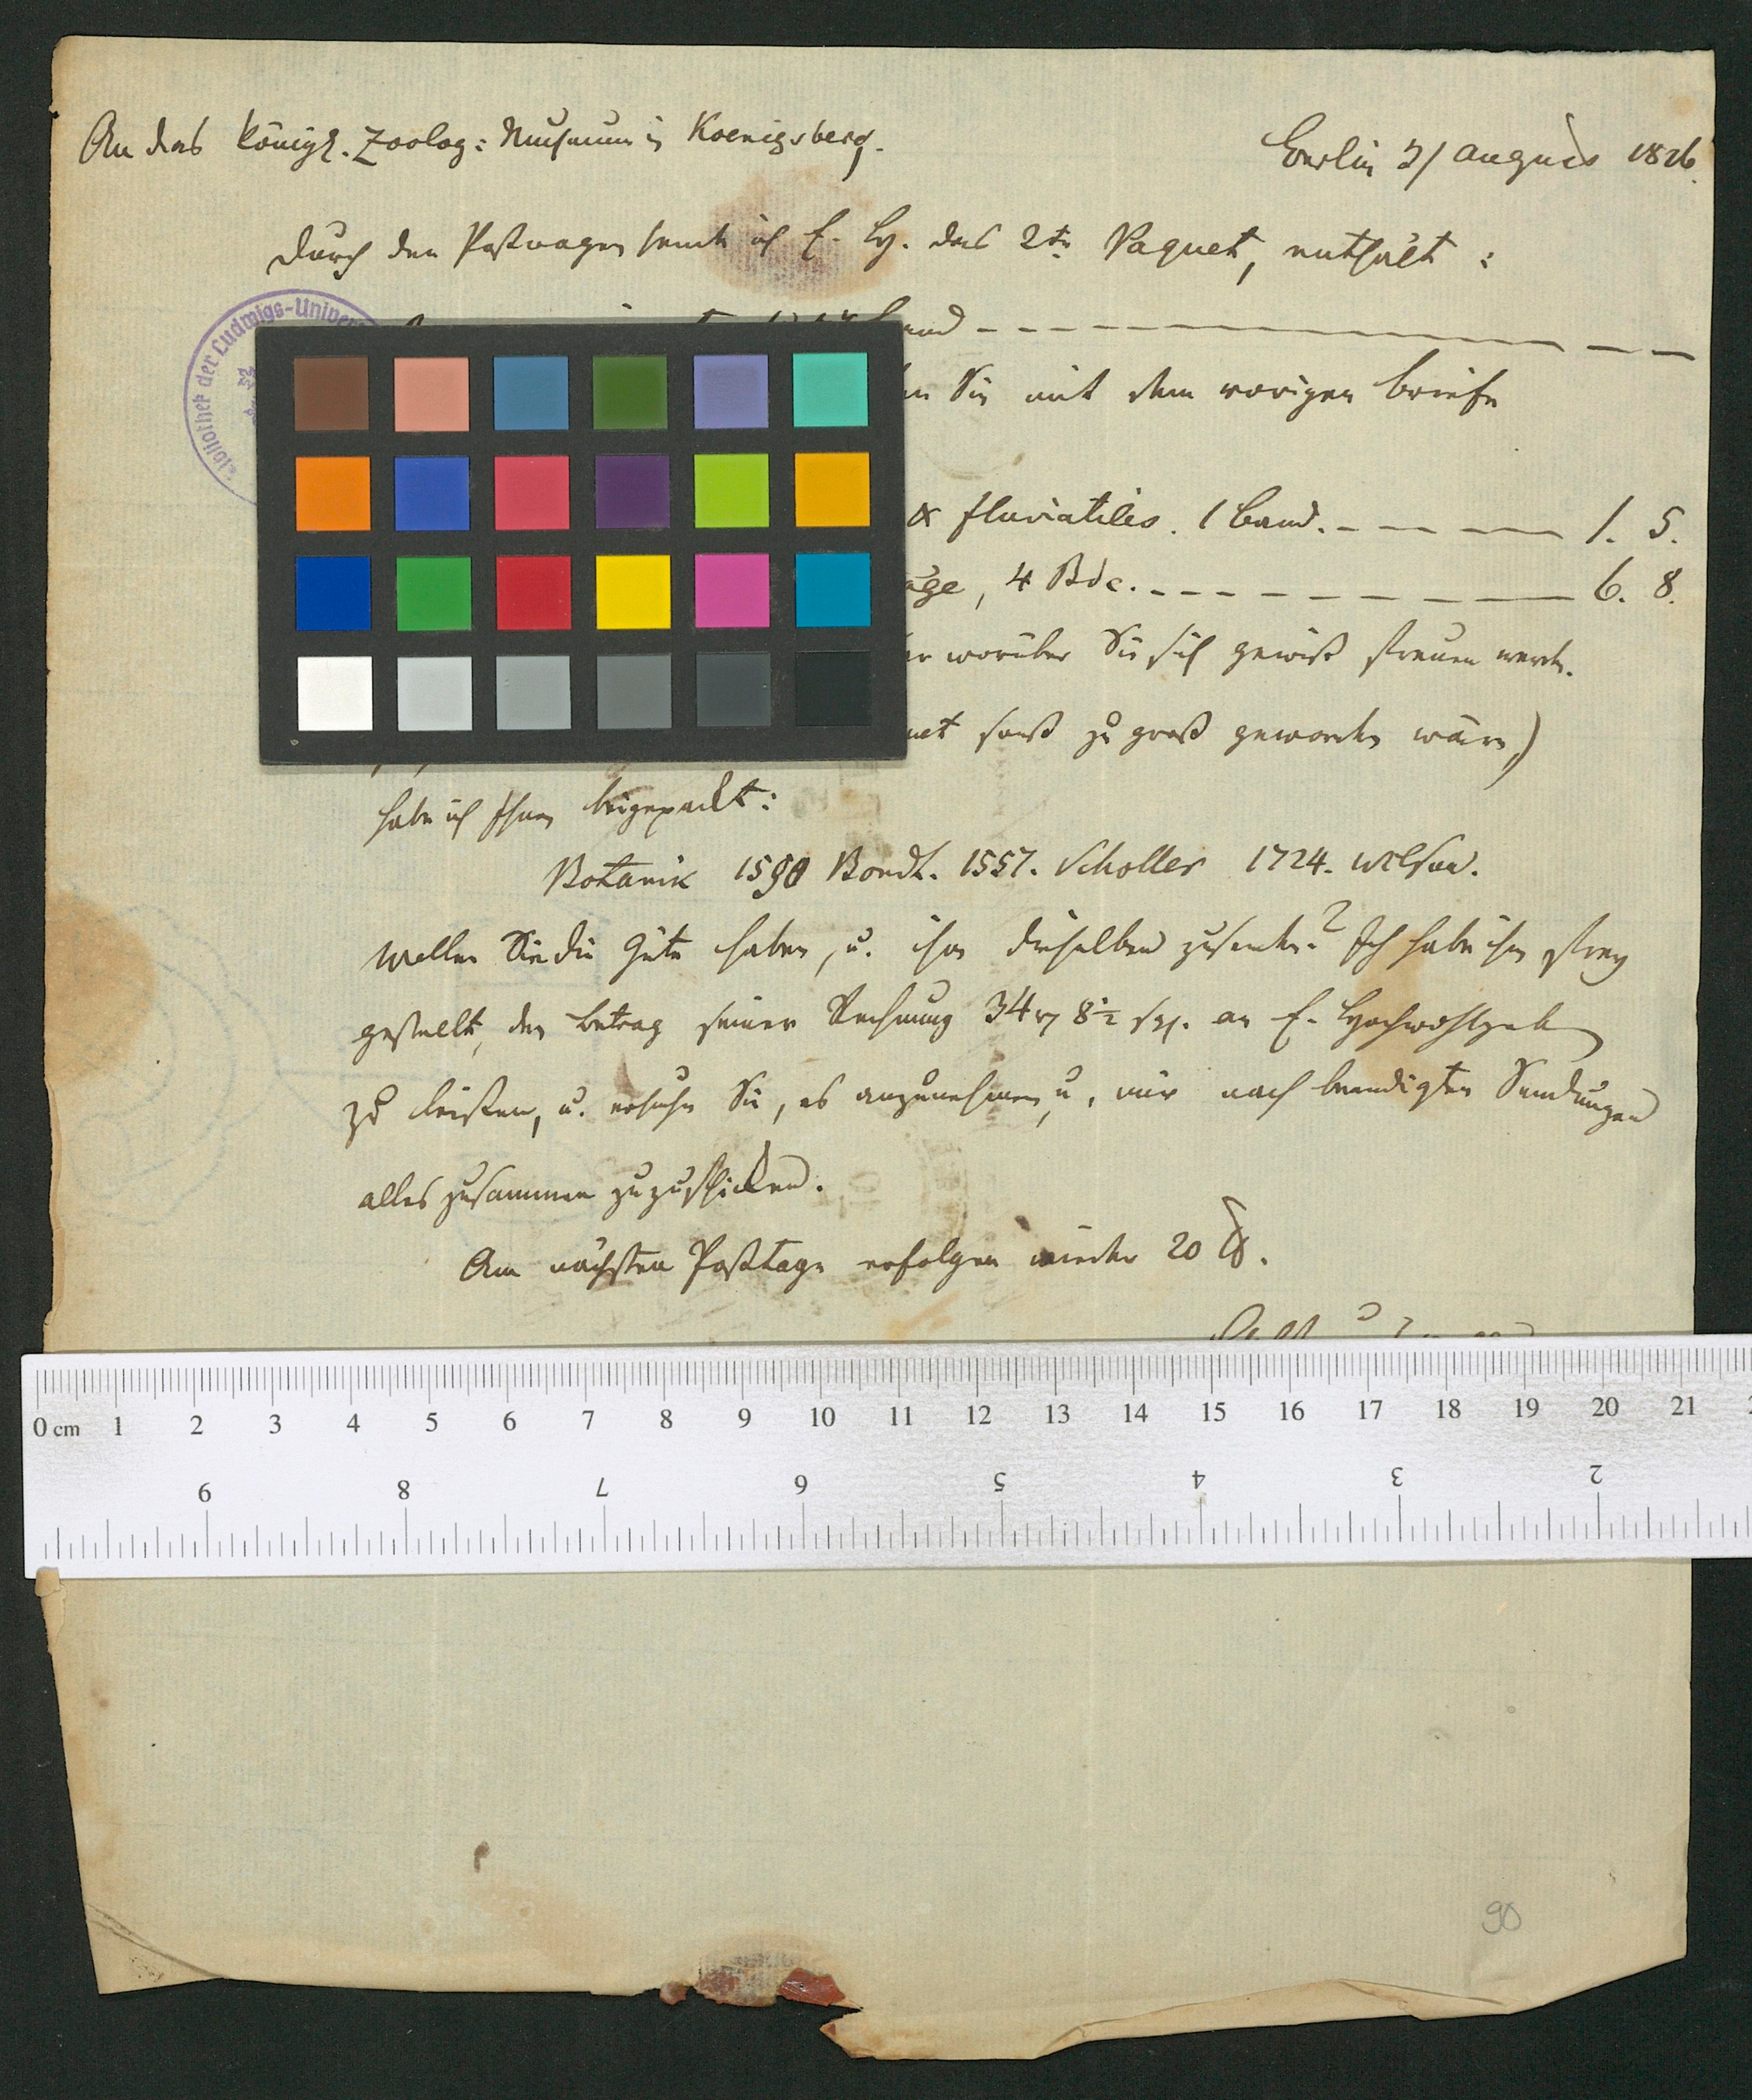 An das königl. Zoolog: Museum in Koenigsberg.
Berlin 31 August 1826.
Durch den Postwagen sende ich E. H. das 2te Paquet, enthält:
band
Sie mit dem vorigen Briefe
& fluviatiles. 1 Band. 1. 5.
age, 4 Bde. 6. 8.
worüber Sie sich gewiß freuen werden.
sonst zu groß geworden wäre,)
habe ich Ihnen beigepackt:
Botanik 1590 Bondt. 1557. Scholler 1724. Wilson.
Wollen Sie die Güte haben, u. ihm dieselben zusenden? Ich habe ihm frey
gestellt, den Betrag seiner Rechnung 34 8½ sgr. an E. Hochwohlgeb
zu leisten, u. ersuche Sie, es anzunehmen, u. mir nach beendigten Sendungen
alles zusammen zuzuschicken.
Am nächsten Posttage erfolgen wieder 20 ℔.
bibliothek der Ludwigs-Univer
0 cm 1 2 3 4 5 6 7 8 9 10 11 12 13 14 15 16 17 18 19 20 21
2 3 4 5 6 7 8 9
90